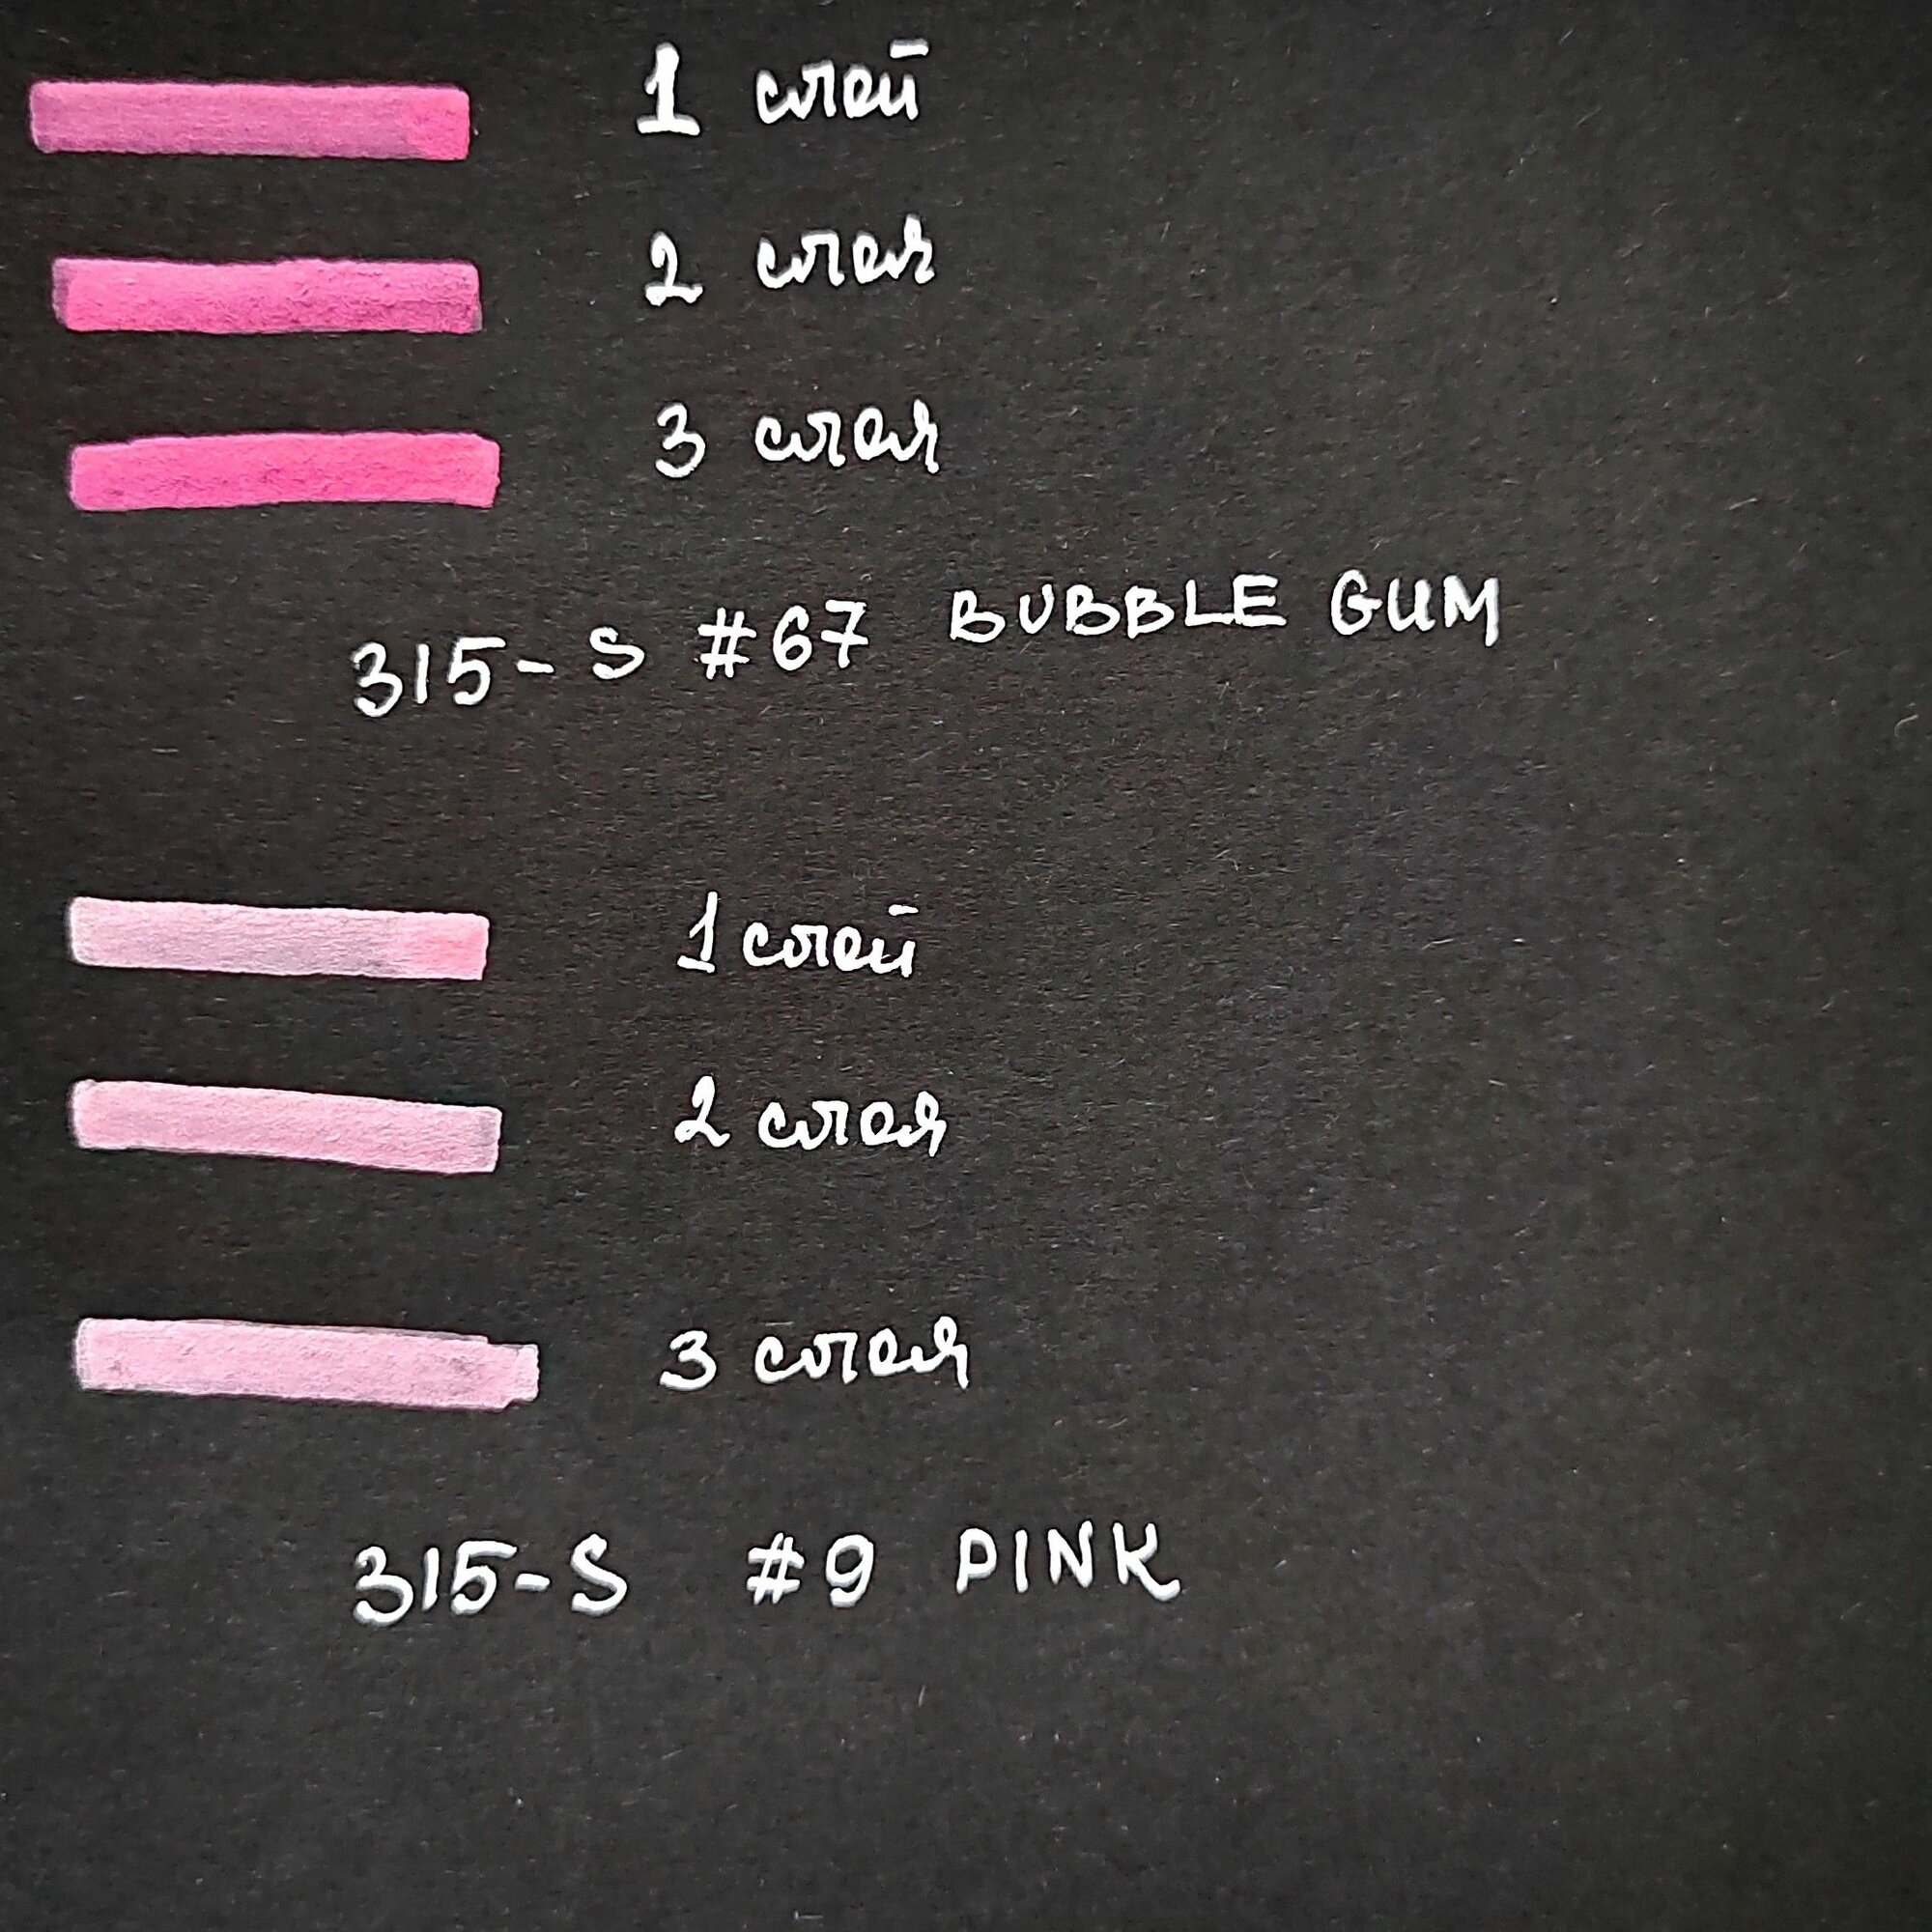 1 слой
2 слоя
3 слоя
315-S #67 BUBBLE GUM
1 слой
2 слоя
3 слоя
315-S #9 PINK